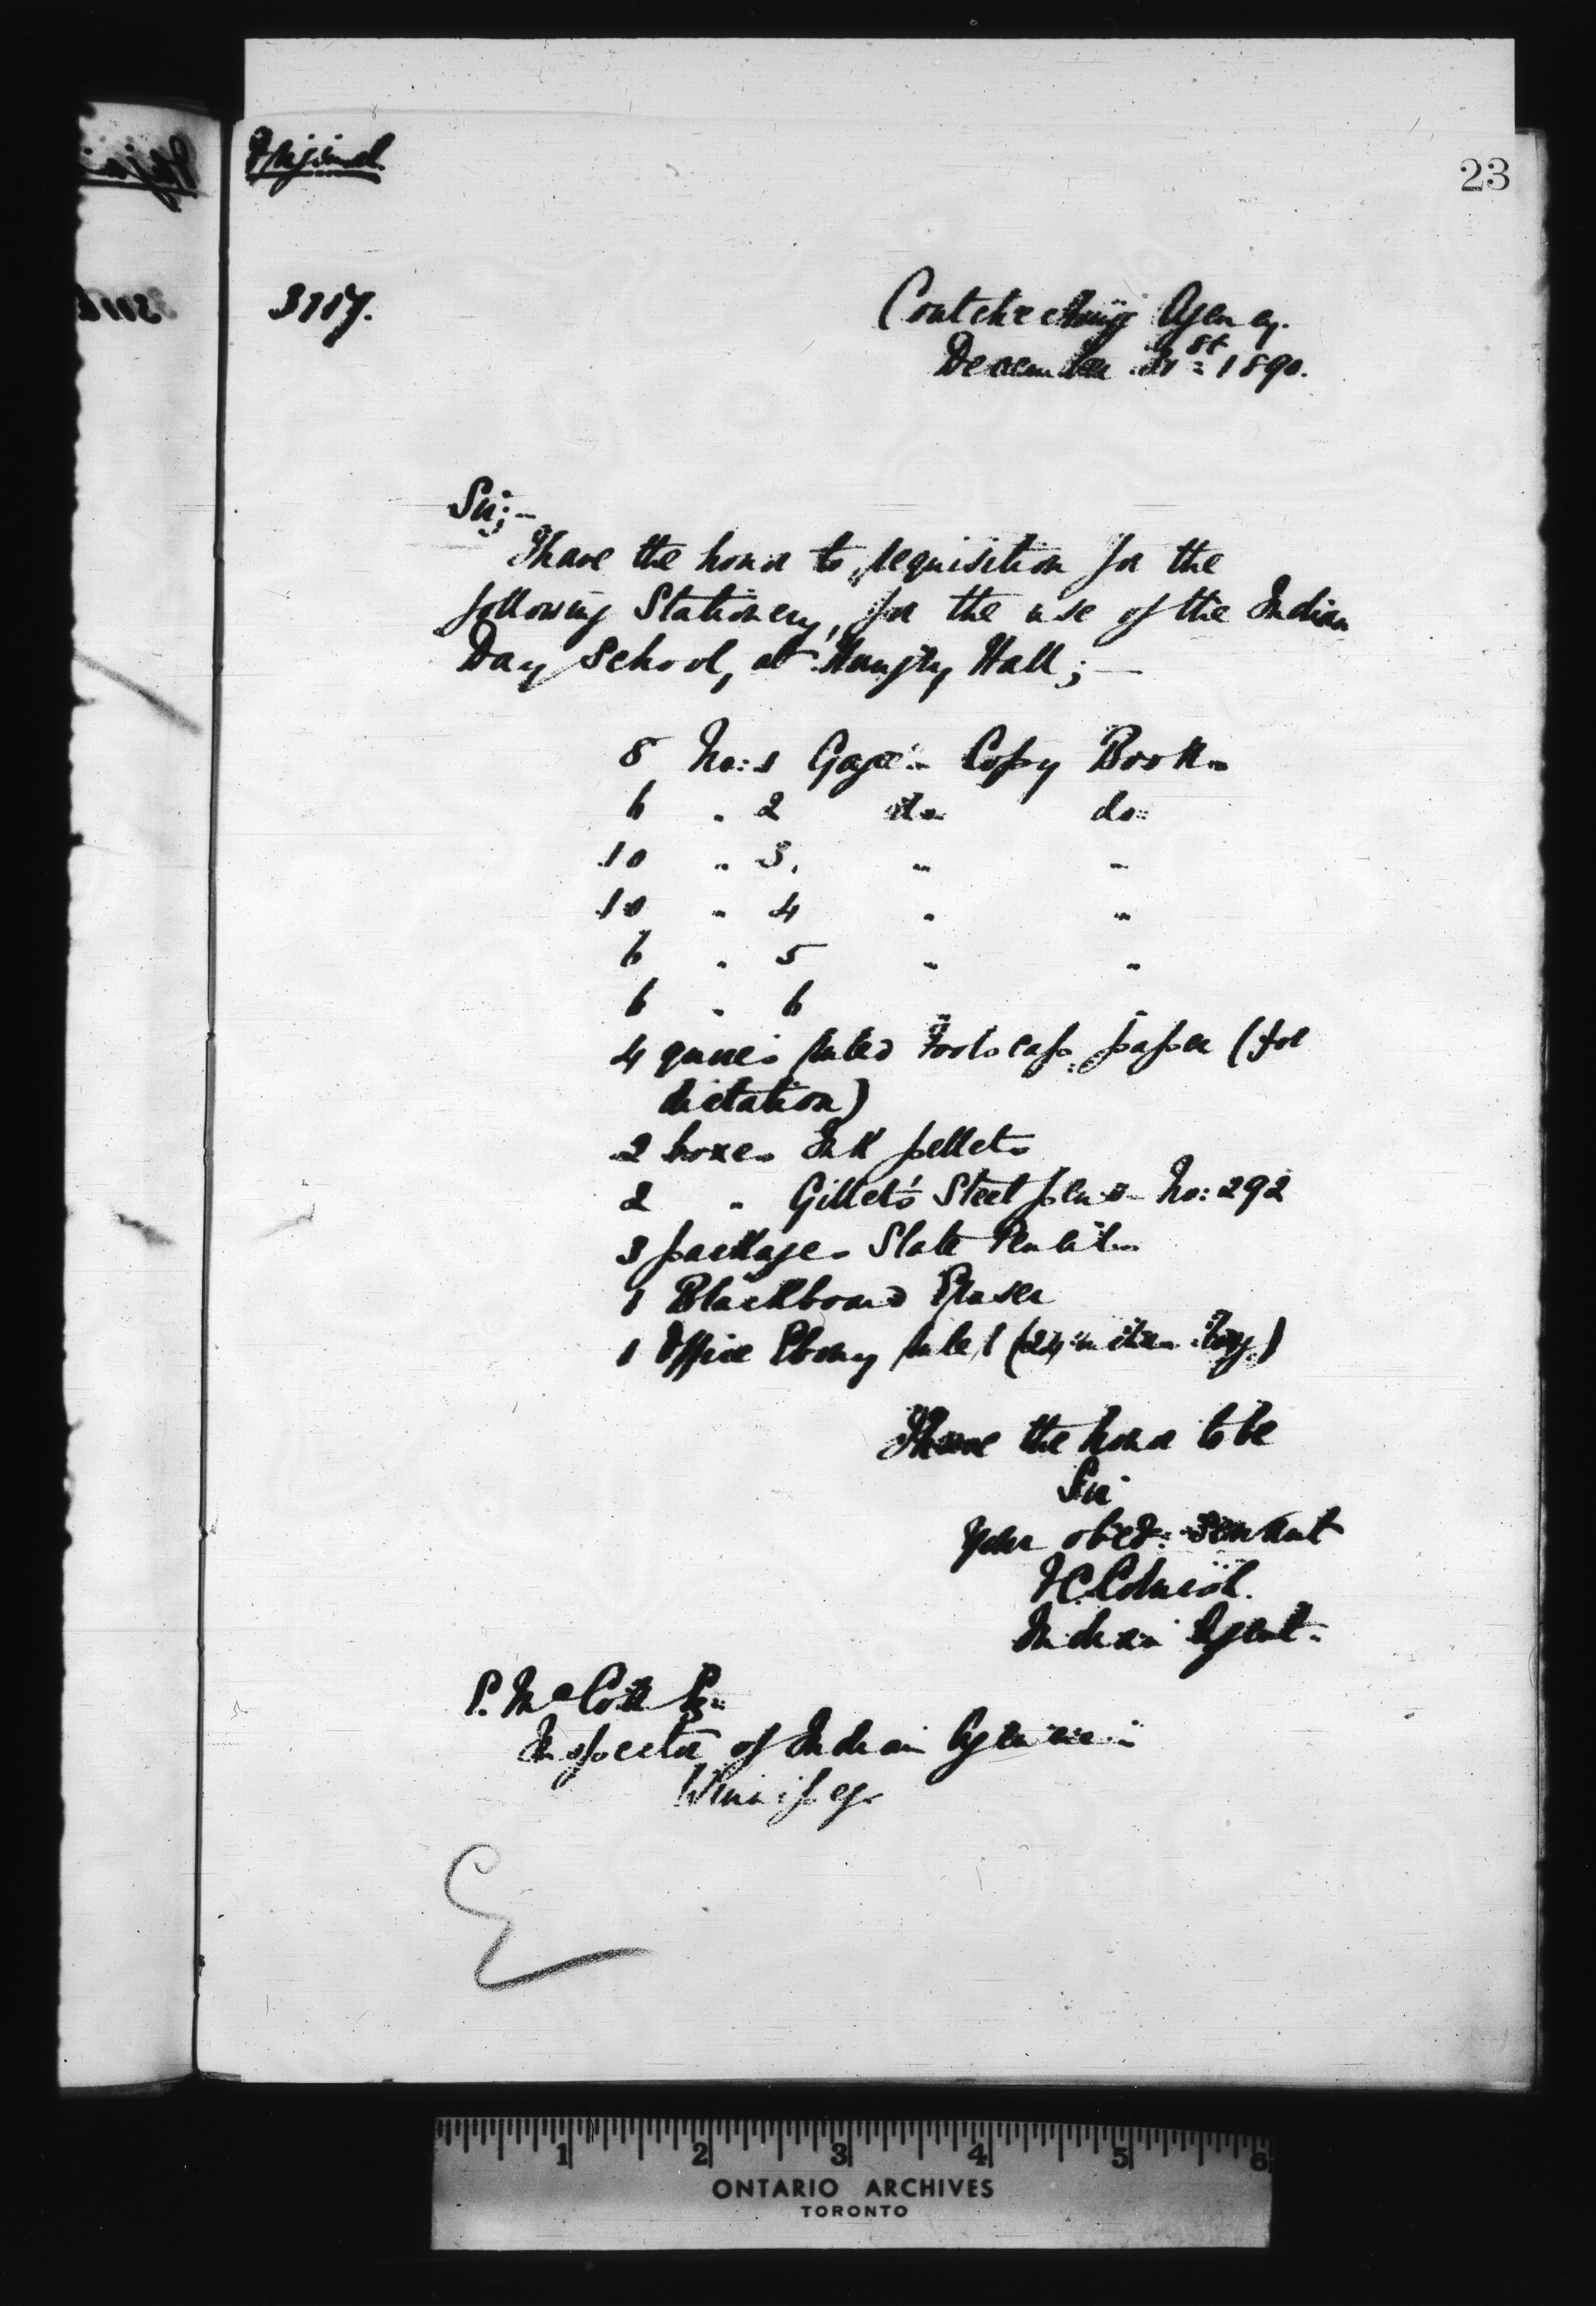 Original
23
3117.
Coutcheeching Agency.
December 31st 1890.
Sir;-
I have the honor to requisition for the
following Stationery, for the use of the Indian
Day School, at Hungry Hall;—
8 No: 1 Gage's Copy Books
6 " 2 do do
10 " 3. " "
10 " 4 " "
6 " 5 " "
6 " 6
4 quires ruled Foolscap paper (for
dictation)
2 boxes Ink pellets
2 " Gillet's Steel pens No: 292
3 packages Slate Pencils
1 Blackboard Eraser
1 Office Ebony ruler (24 inches long.)
I have the honor to be
Sir
Your obed: servant
Indian Agent.
Inspector of Indian Agencies
Winnipeg.
1 2 3 4 5 6
ONTARIO ARCHIVES
TORONTO